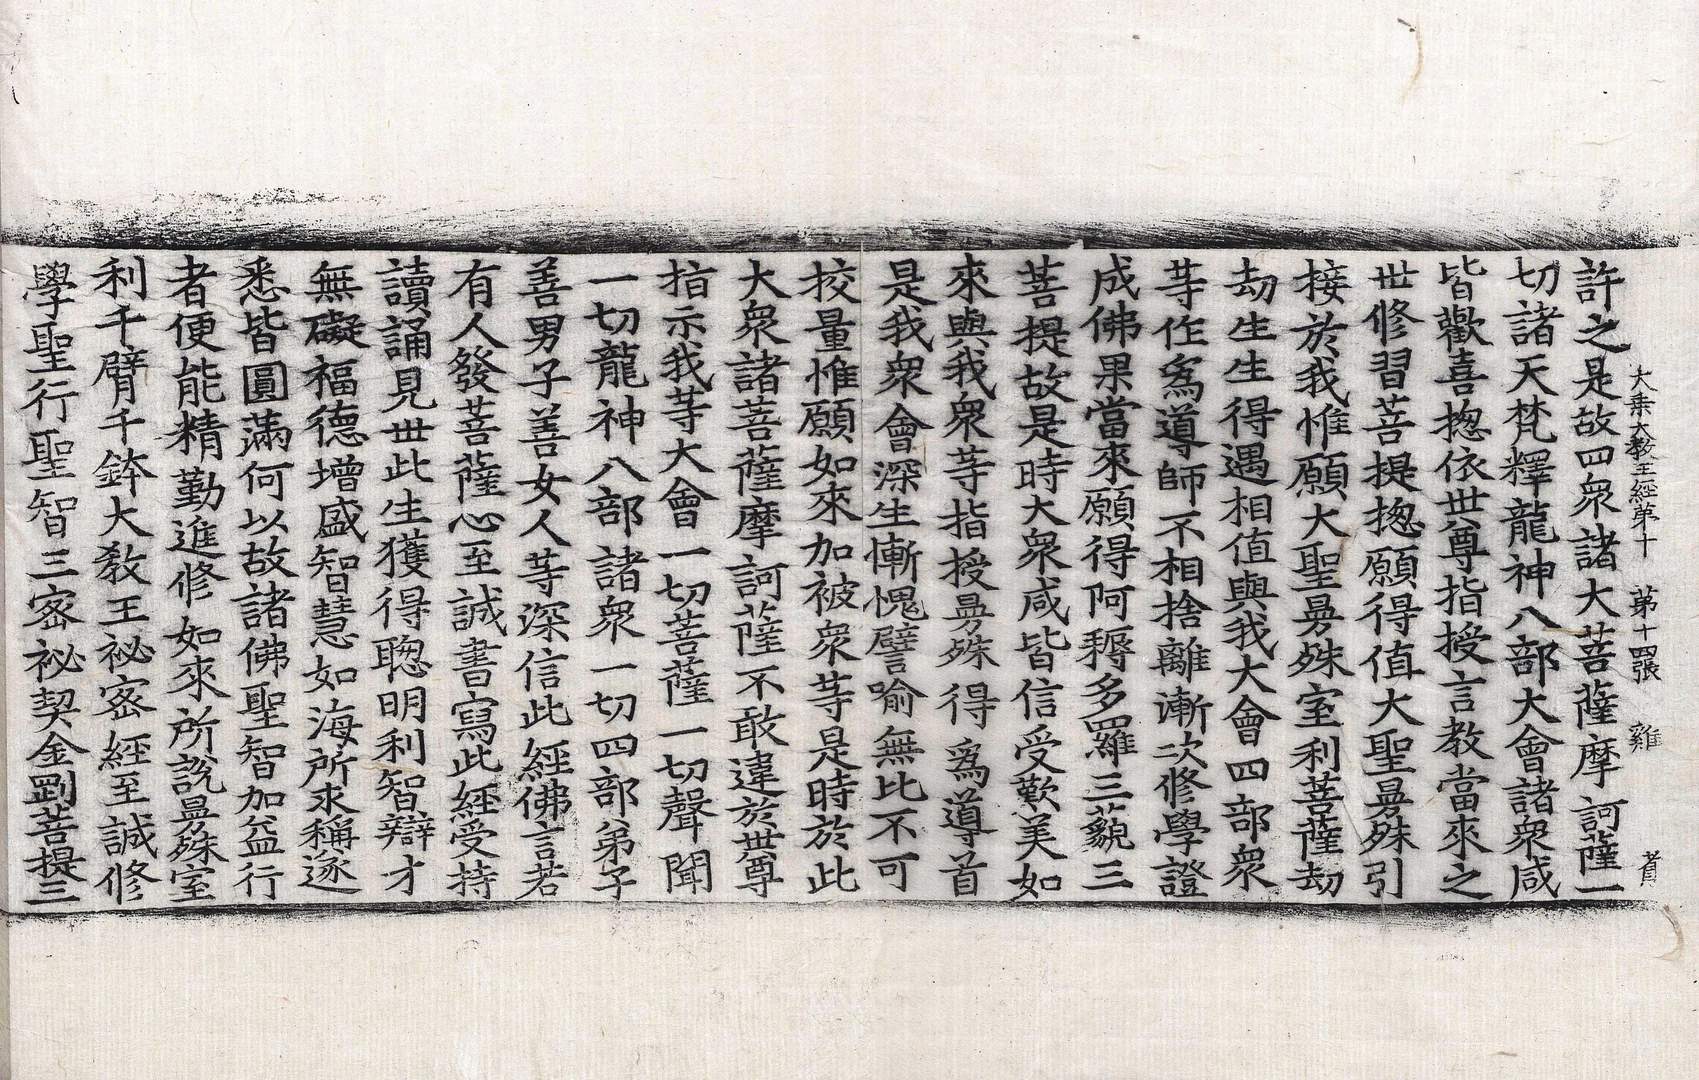 大乗大教王經第十　第十四張　雞
許之是故四衆諸大菩薩摩訶薩一
切諸天梵釋龍神八部大會諸衆咸
皆歡喜揔依世尊指授言教當來之
世修習菩提揔願得值大聖曼殊引
接於我惟願大聖曼殊室利菩薩劫
劫生生得遇相值與我大會四部衆
等作爲導師不相捨離漸次修學證
成佛果當來願得阿耨多羅三藐三
菩提故是時大衆咸皆信受歎美如
來與我衆等指授曼殊得爲導首
是我衆會深生慚愧譬喻無比不可
挍量惟願如來加被衆等是時於此
大衆諸菩薩摩訶薩不敢違於世尊
指示我等大會一切菩薩一切聲聞
一切龍神八部諸衆一切四部弟子
善男子善女人等深信此經佛言若
有人發菩薩心至誠書寫此經受持
讀誦見世此生獲得聦明利智辯才
無礙福德增盛智慧如海所求稱遂
悉皆圓滿何以故諸佛聖智加益行
者便能精勤進修如來所說曼殊室
利千臂千鉢大教王祕密經至誠修
學聖行聖智三密祕契金剛菩提三